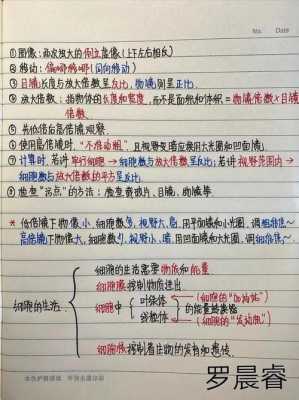 No.
Date
①图像:两次放大的倒立虚像(上下左右相反)
②移动:偏哪移哪(同向移动)
③目镜长度与放大倍数呈反比,物镜则呈正比.
④放大倍数:指物体的长度和宽度,而不是面积和体积=物镜倍数×目镜
倍数.
⑤先低倍后高倍镜观察.
⑥使用高倍镜时,"不准动粗",且视野变暗应换用大光圈和凹面镜.
⑦计算时,若讲单行细胞→细胞数与放大倍数呈反比;若讲视野范围内→
细胞数与放大倍数的平方呈反比.
⑧检查"污点"的方法:检查载玻片、目镜、物镜等
*低倍镜下物像小、细胞数多、视野大、亮,用平面镜和小光圈,调粗准焦~
高倍镜下物像大、细胞数少、视野小、暗,用凹面镜和大光圈,调细准焦~.
细胞的生活需要物质和能量.
细胞膜控制物质进出
细胞的生活
细胞中
叶绿体
(细胞的"加油站")
的能量转换器
线粒体
(细胞的"发动机")
细胞核控制着生物的发育和遗传.
罗晨睿